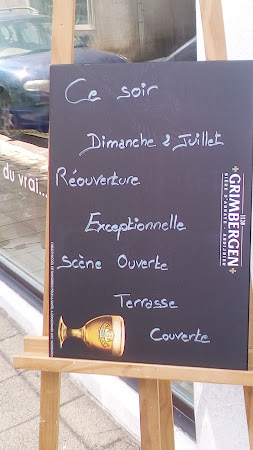 Ce soir
Dimanche 2 Juillet
Réouverture
Exceptionnelle
Scène Ouverte
Terrasse
Couverte
GRIMBERGEN
du vrai...